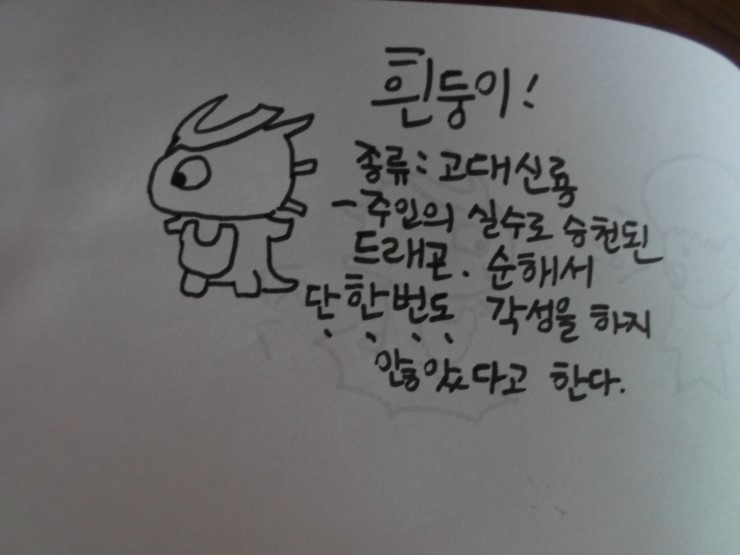 흰둥이!
종류: 고대신룡
-주인의 실수로 승천된
드래곤. 순해서
단한번도 각성을 하지
않았다고 한다.